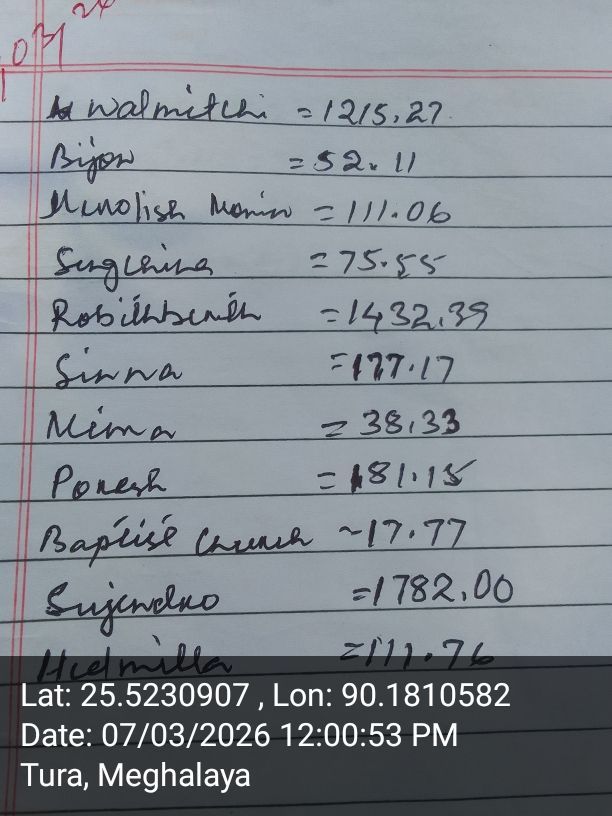 03/24
Walmitchi = 1215.27
Bijon = 52.11
Menolish Momin = 111.06
Sengchina = 75.55
Robithbirth = 1432.39
Sinna = 177.17
Mima = 38.33
Ponesh = 181.15
Baptist Church ~ 17.77
Sujendro = 1782.00
Hudmilla = 111.76
Lat: 25.5230907 , Lon: 90.1810582
Date: 07/03/2026 12:00:53 PM
Tura, Meghalaya